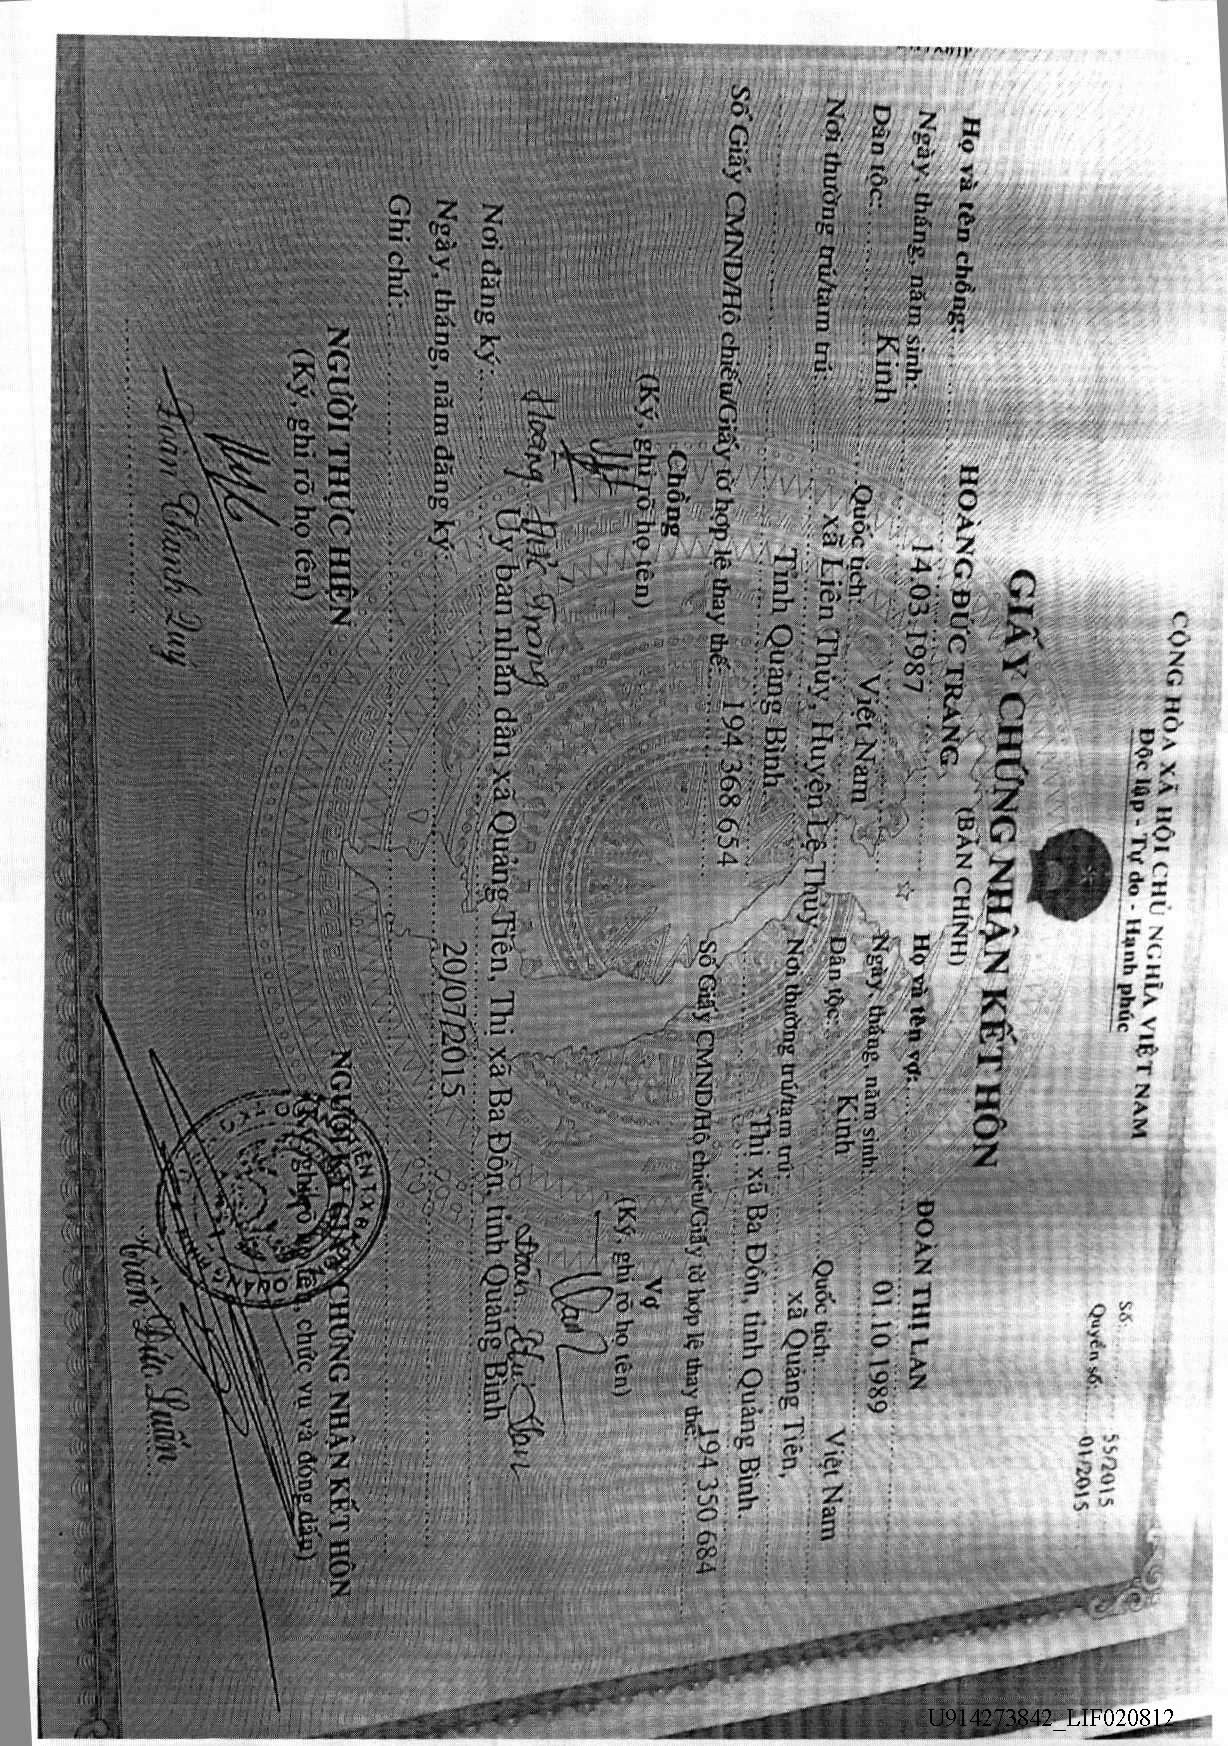 CỘNG HÒA XÃ HỘI CHỦ NGHĨA VIỆT NAM
Độc lập - Tự do - Hạnh phúc
Số: 55/2015
Quyển số: 01/2015
GIẤY CHỨNG NHẬN KẾT HÔN
(BẢN CHÍNH)
Họ và tên chồng: HOÀNG ĐỨC TRANG
Ngày, tháng, năm sinh: 14.03.1987
Dân tộc: Kinh Quốc tịch: Việt Nam
Nơi thường trú/tạm trú: xã Liên Thủy, Huyện Lệ Thủy
Tỉnh Quảng Bình
Số Giấy CMND/Hộ chiếu/Giấy tờ hợp lệ thay thế: 194 368 654
Chồng
(Ký, ghi rõ họ tên)
Hoàng Đức Trang
Họ và tên vợ: ĐOÀN THỊ LAN
Ngày, tháng, năm sinh: 01.10.1989
Dân tộc: Kinh Quốc tịch: Việt Nam
Nơi thường trú/tạm trú: xã Quảng Tiên,
Thị xã Ba Đồn, tỉnh Quảng Bình.
Số Giấy CMND/Hộ chiếu/Giấy tờ hợp lệ thay thế: 194 350 684
Vợ
(Ký, ghi rõ họ tên)
Đoàn Thị Lan
Nơi đăng ký: Ủy ban nhân dân xã Quảng Tiên, Thị xã Ba Đồn, tỉnh Quảng Bình
Ngày, tháng, năm đăng ký: 20/07/2015
Ghi chú:
NGƯỜI THỰC HIỆN
(Ký, ghi rõ họ tên)
Đoàn Thanh Quy
NGƯỜI KÝ GIẤY CHỨNG NHẬN KẾT HÔN
(Ký, ghi rõ họ tên, chức vụ và đóng dấu)
Trần Đức Luấn
U914273842_LIF020812